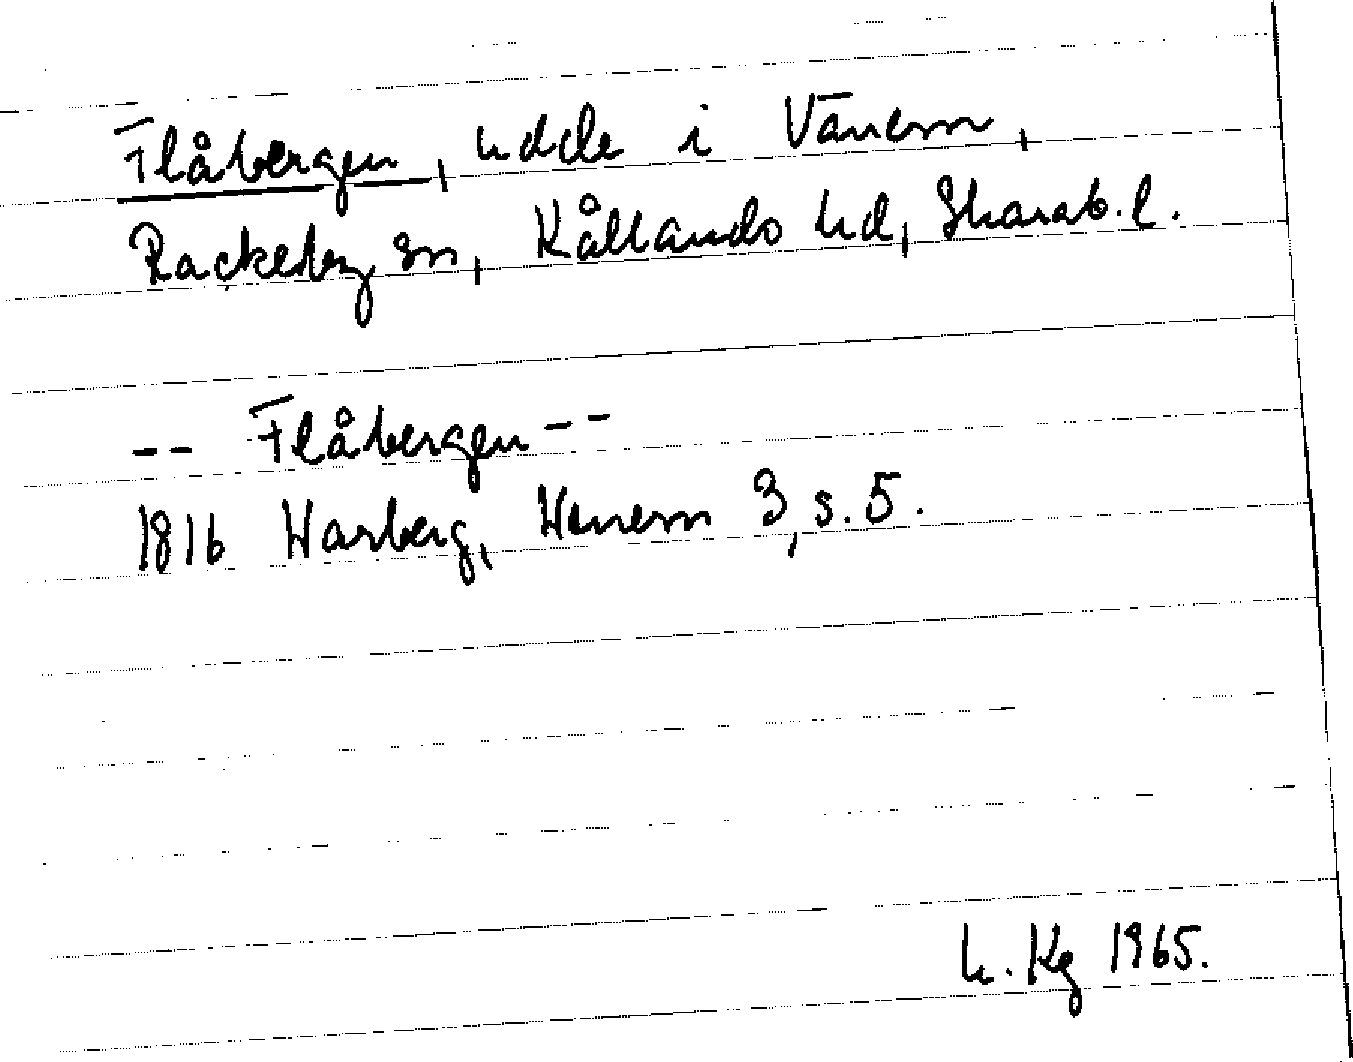 Flåbergen, udde i Vänern,
Rackeby sn, Kållands hd, Skarab. l.
-- Flåbergen --
1816 Warberg, Wenern 3, s. 5.
h. Kg 1965.